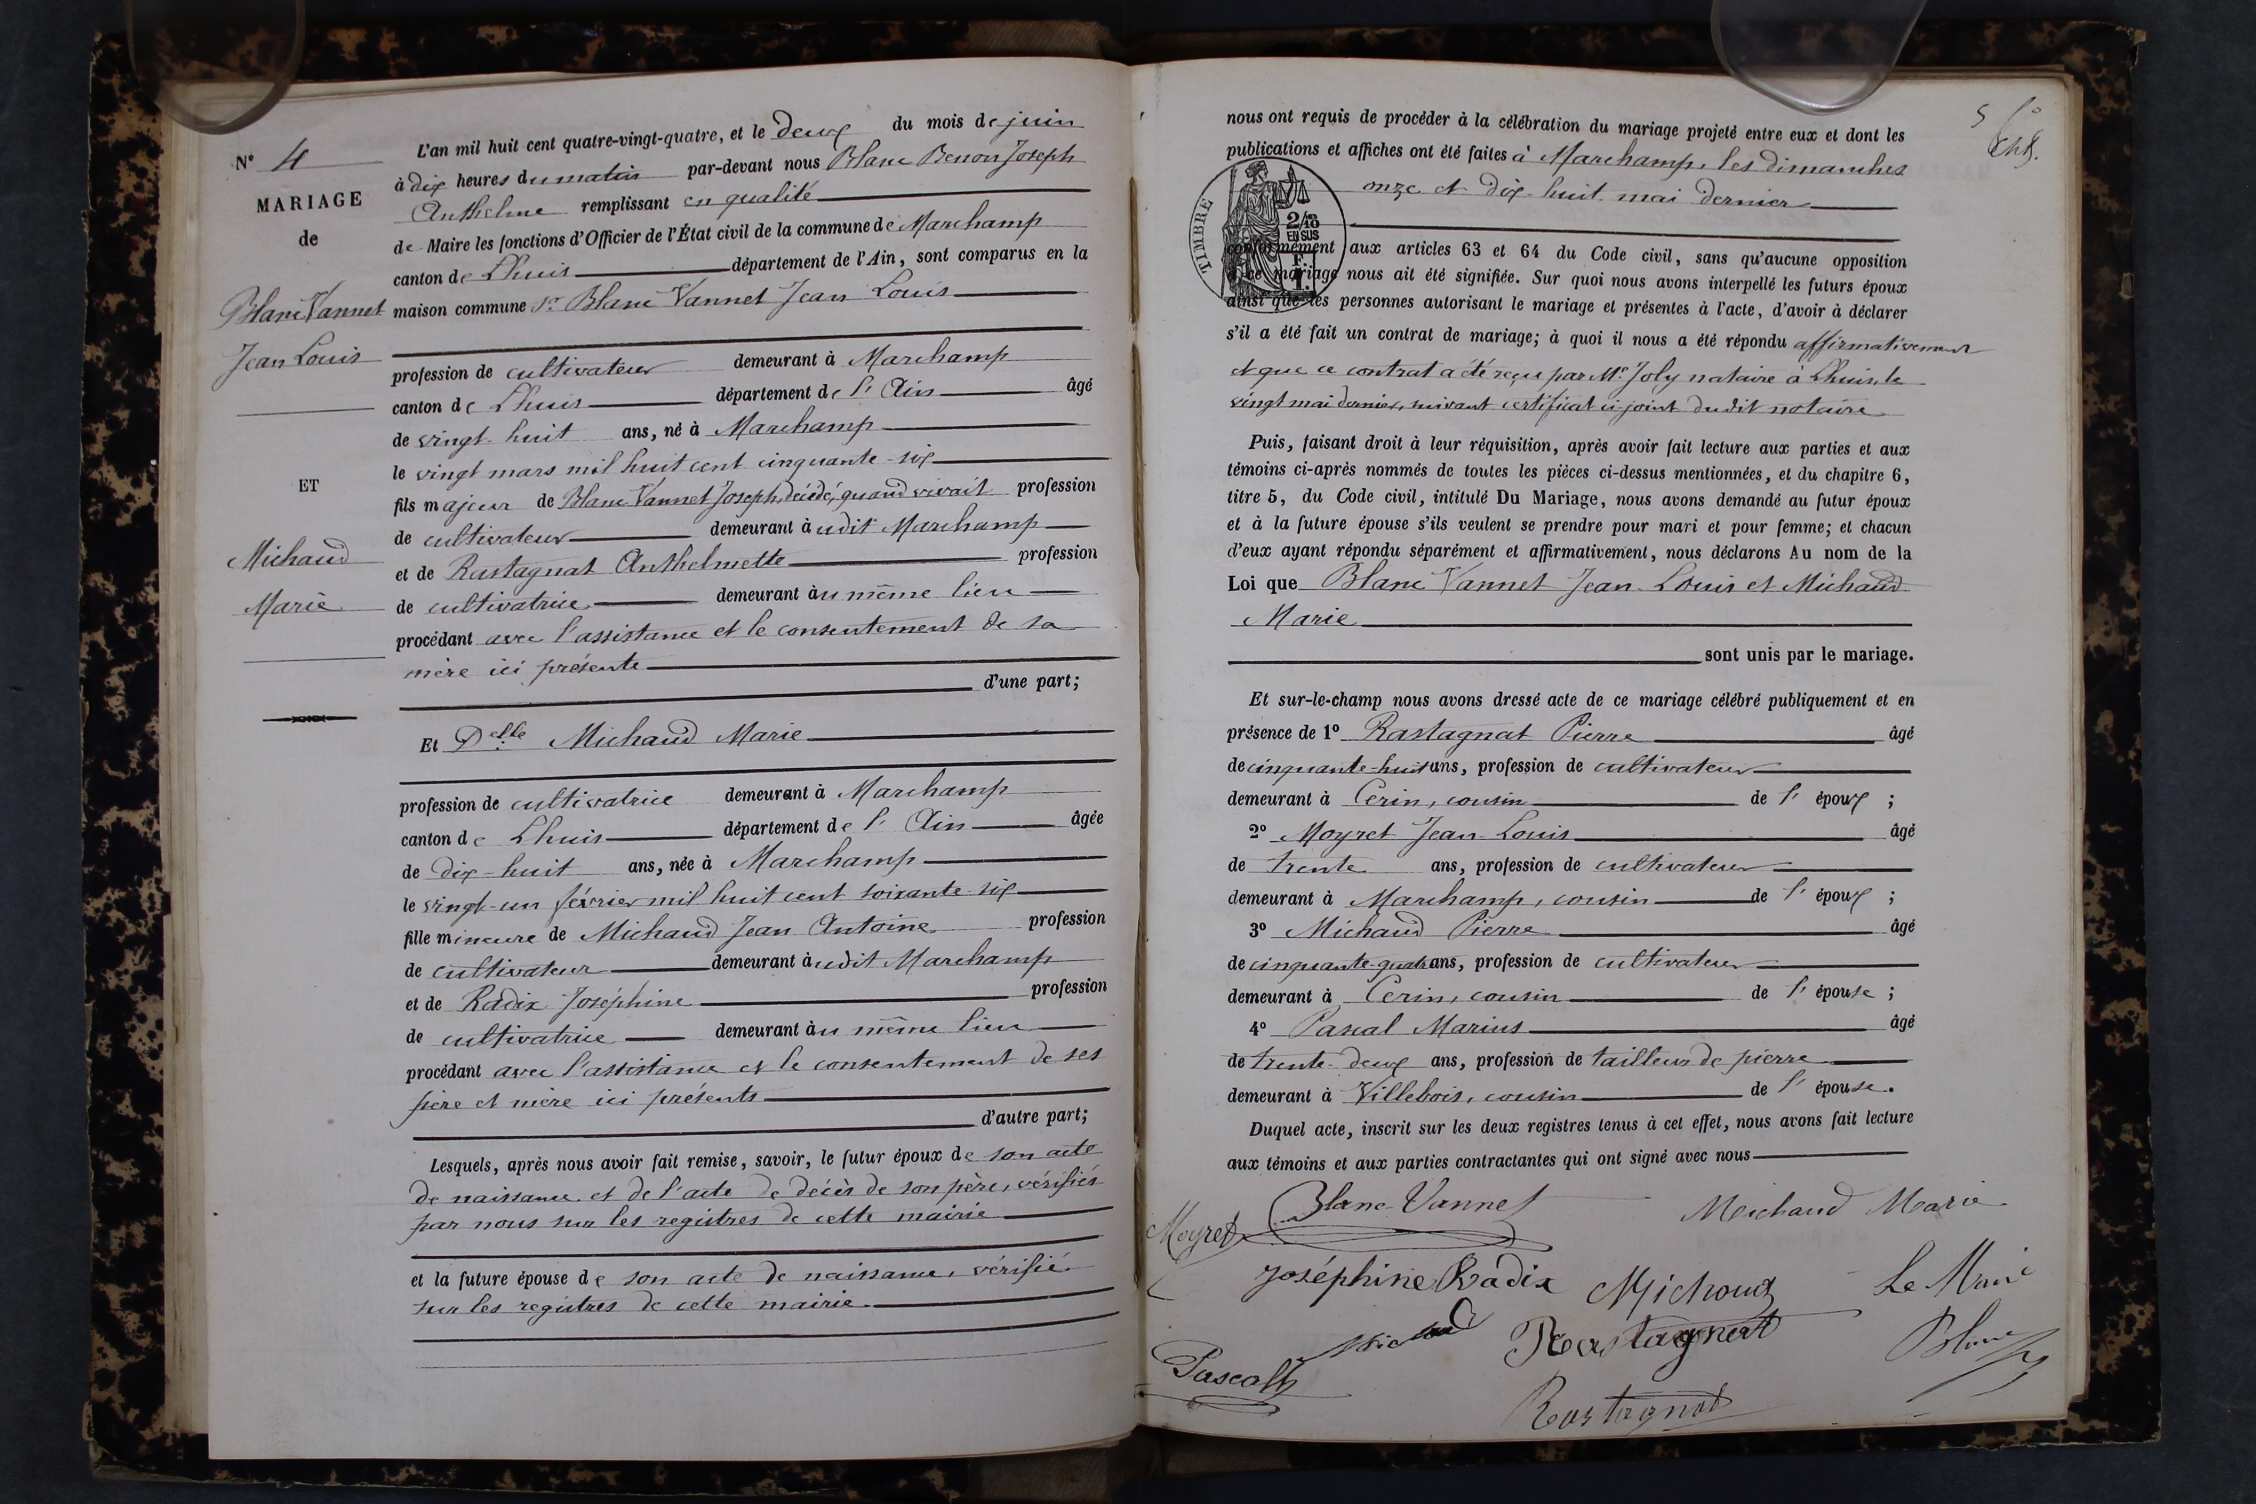 N° 4
MARIAGE
de
Blanc Vannet
Jean Louis
ET
Michaud
Marie
L'an mil huit cent quatre-vingt-quatre, et le deux du mois de juin
à dix heures du matin par-devant nous Blanc Benon Joseph
Anthelme remplissant en qualité
de Maire les fonctions d'Officier de l'État civil de la commune de Marchamp
canton de Lhuis département de l'Ain, sont comparus en la
maison commune Sr. Blanc Vannet Jean Louis
profession de cultivateur demeurant à Marchamp
canton de Lhuis département de l'Ain âgé
de vingt-huit ans, né à Marchamp
le vingt mars mil huit cent cinquante-six
fils majeur de Blanc Vannet Joseph, décédé, quand vivait profession
de cultivateur demeurant à udit Marchamp
et de Rastagnat Anthelmette profession
de cultivatrice demeurant àu même lieu
procédant avec l'assistance et le consentement de sa
mère ici présente
d'une part;
Et Delle Michaud Marie
profession de cultivatrice demeurant à Marchamp
canton de Lhuis département de l'Ain âgée
de dix-huit ans, née à Marchamp
le vingt-un février mil huit cent soixante-six
fille mineure de Michaud Jean Antoine profession
de cultivateur demeurant àudit Marchamp
et de Radix Joséphine profession
de cultivatrice demeurant àu même lieu
procédant avec l'assistance et le consentement de ses
père et mère ici présents
d'autre part;
Lesquels, après nous avoir fait remise, savoir, le futur époux de son acte
de naissance et de l'acte de décès de son père, vérifiés
par nous sur les registres de cette mairie
et la future épouse de son acte de naissance, vérifié
sur les registres de cette mairie.
5
nous ont requis de procéder à la célébration du mariage projeté entre eux et dont les
publications et affiches ont été faites à Marchamp, les dimanches
onze et dix-huit mai dernier
TIMBRE
2/10
EN SUS
conformément aux articles 63 et 64 du Code civil, sans qu'aucune opposition
à ce mariage nous ait été signifiée. Sur quoi nous avons interpellé les futurs époux
ainsi que les personnes autorisant le mariage et présentes à l'acte, d'avoir à déclarer
s'il a été fait un contrat de mariage; à quoi il nous a été répondu affirmativement
et que ce contrat a été reçu par Me Joly notaire à Lhuis, le
vingt mai dernier, suivant certificat ci-joint dudit notaire
Puis, faisant droit à leur réquisition, après avoir fait lecture aux parties et aux
témoins ci-après nommés de toutes les pièces ci-dessus mentionnées, et du chapitre 6,
titre 5, du Code civil, intitulé Du Mariage, nous avons demandé au futur époux
et à la future épouse s'ils veulent se prendre pour mari et pour femme; et chacun
d'eux ayant répondu séparément et affirmativement, nous déclarons Au nom de la
Loi que Blanc Vannet Jean-Louis et Michaud
Marie
sont unis par le mariage.
Et sur-le-champ nous avons dressé acte de ce mariage célébré publiquement et en
présence de 1° Rastagnat Pierre âgé
de cinquante-huit ans, profession de cultivateur
demeurant à Cerin, cousin de l'époux;
2° Moyret Jean-Louis âgé
de trente ans, profession de cultivateur
demeurant à Marchamp, cousin de l'époux;
3° Michaud Pierre âgé
de cinquante-quatre ans, profession de cultivateur
demeurant à Cerin, cousin de l'épouse;
4° Pascal Marius âgé
de trente-deux ans, profession de tailleur de pierre
demeurant à Villebois, cousin de l'épouse.
Duquel acte, inscrit sur les deux registres tenus à cet effet, nous avons fait lecture
aux témoins et aux parties contractantes qui ont signé avec nous
Moyret Blanc-Vannet Michaud Marie
Joséphine Radix Michoud Le Maire
Rastagnat Blanc
Pascal
Rastagnat